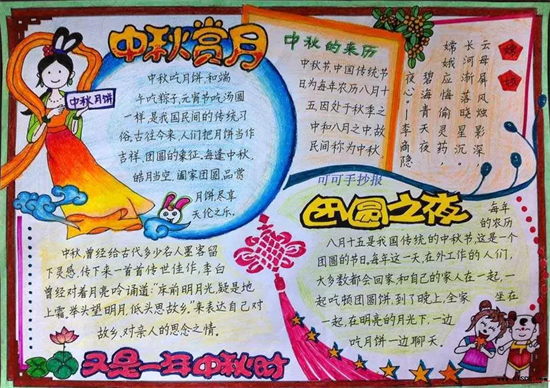 中秋赏月
中秋月饼
中秋吃月饼,和端
午吃粽子,元宵节吃汤圆
一样,是我国民间的传统习
俗.古往今来,人们把月饼当作
吉祥、团圆的象征.每逢中秋,
皓月当空,阖家团圆,品尝
月饼尽享
天伦之乐.
中秋的来历
中秋节,中国传统节
日为每年农历八月十
五,因处于秋季之
中和八月之中故
民间称为中秋
嫦娥
云母屏风烛影深,
长河渐落晓星沉。
嫦娥应悔偷灵药,
碧海青天夜
夜心——李商隐
可可手抄报
中秋,曾经给古代多少名人墨客留
下灵感,传下来一首首传世佳作,李白
曾经对着月亮吟诵道:"床前明月光,疑是地
上霜,举头望明月,低头思故乡."来表达自己对
故乡,对亲人的思念之情.
又是一年中秋时
团圆之夜
每年
的农历
八月十五是我国传统的中秋节,这是一个
团圆的节日,每年这一天,在外工作的人们,
大多数都会回家,和自己的家人在一起,一
起吃顿团圆饼,到了晚上,全家坐在
一起,在明亮的月光下,一边
吃月饼一边聊天.